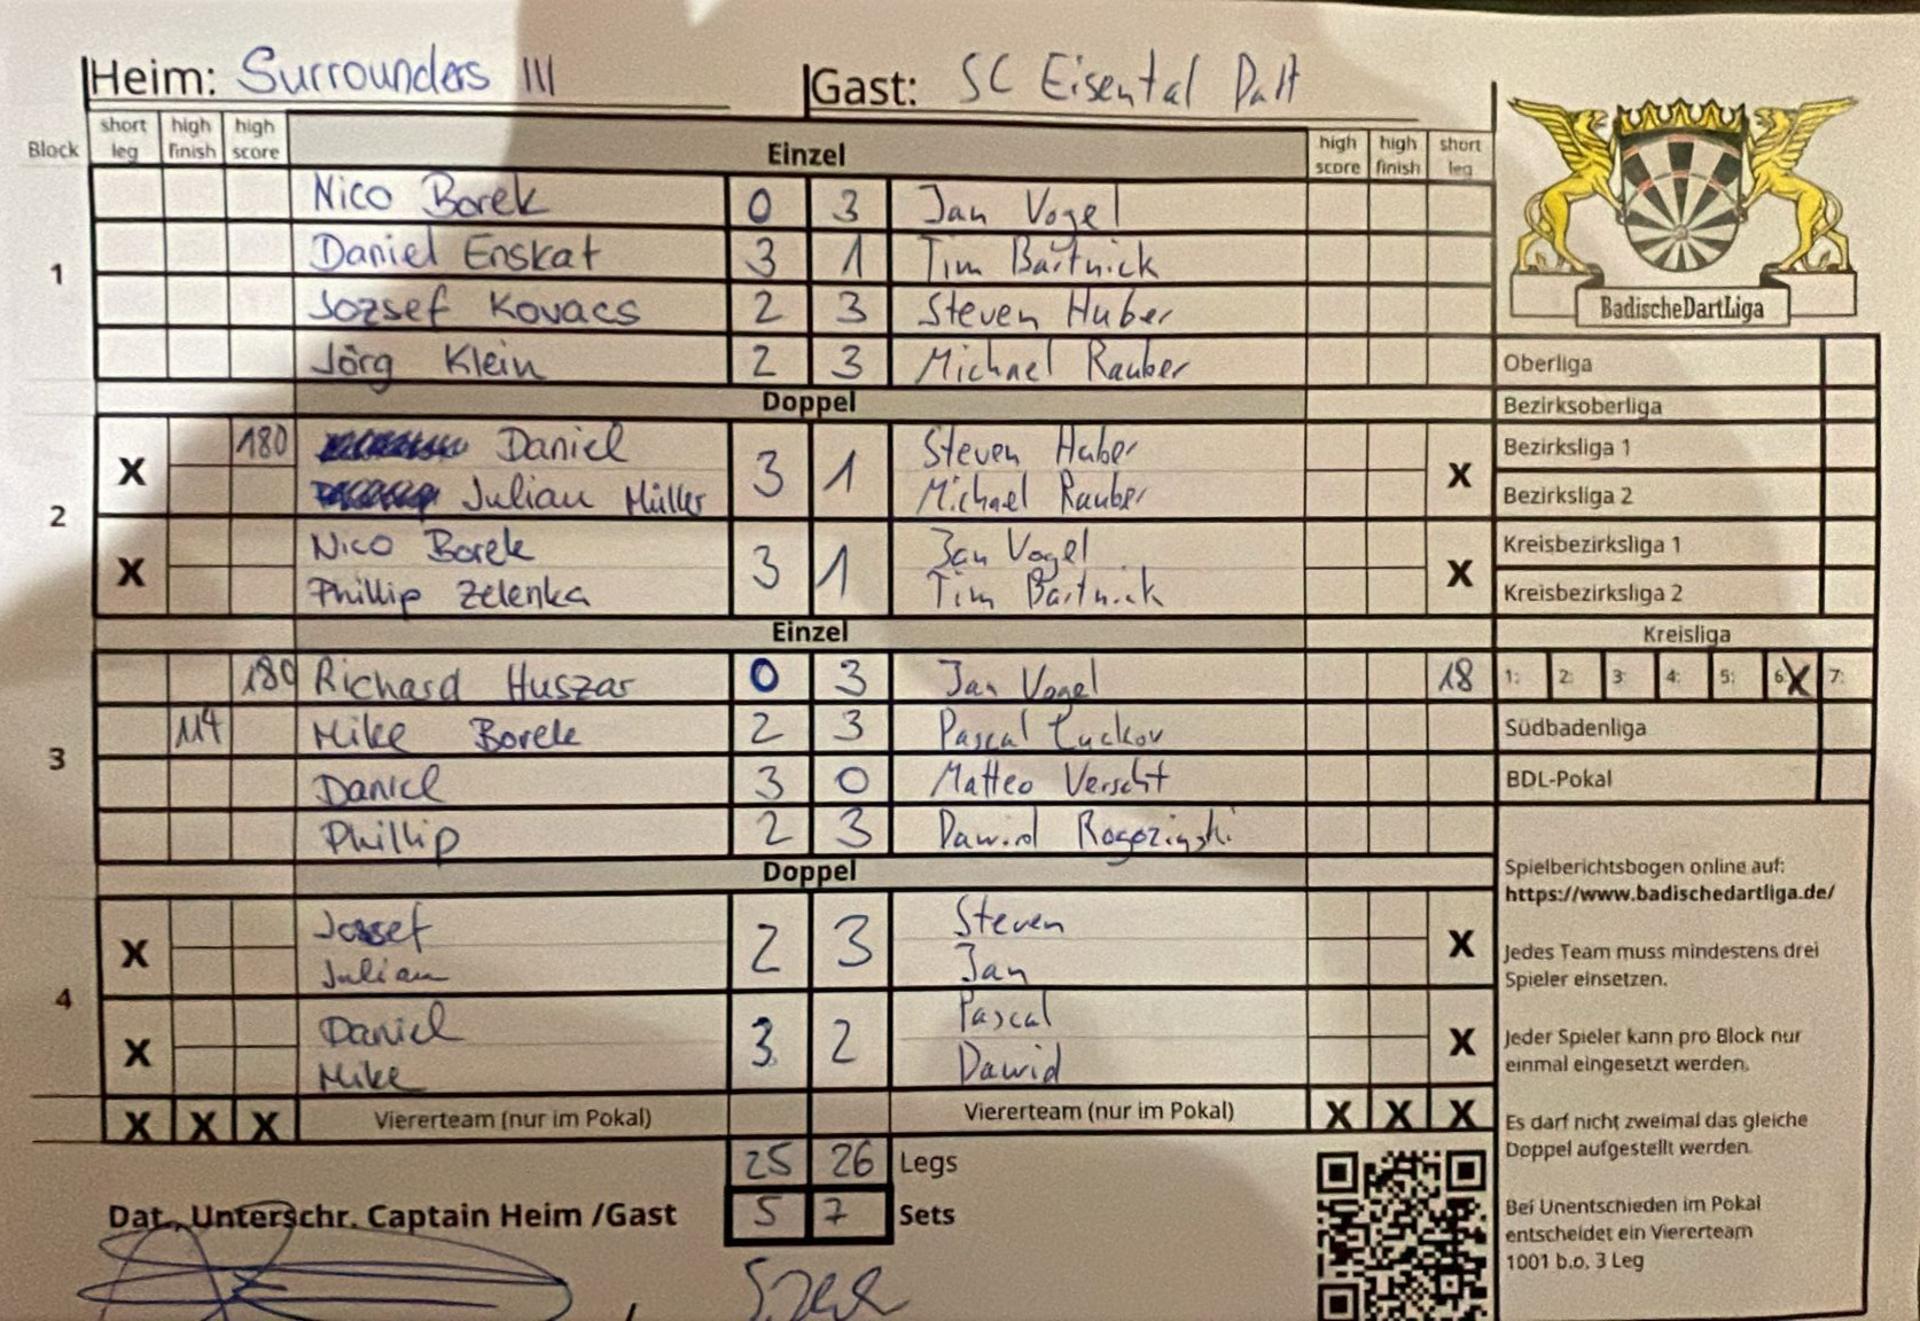 Heim: Surrounders III Gast: SC Eisental Dart
Block short leg high finish high score Einzel high score high finish short leg
1
Nico Borek 0 3 Jan Vogel
Daniel Enskat 3 1 Tim Bartnick
Jozsef Kovacs 2 3 Steven Huber
Jörg Klein 2 3 Michael Rauber
Doppel
2
X 180 Daniel 3 1 Steven Huber X
Julian Müller Michael Rauber
X Nico Borek 3 1 Jan Vogel X
Phillip Zelenka Tim Bartnick
Einzel
3
180 Richard Huszar 0 3 Jan Vogel 18
114 Mike Borek 2 3 Pascal
Daniel 3 0 Matteo Verscht
Phillip 2 3 Dawid Rogozinski
Doppel
4
X Jossef 2 3 Steven X
Julian Jan
X Daniel 3 2 Pascal X
Mike Dawid
X X X Viererteam (nur im Pokal) Viererteam (nur im Pokal) X X X
25 26 Legs
5 7 Sets
Dat., Unterschr. Captain Heim /Gast
/
BadischeDartLiga
Oberliga
Bezirksoberliga
Bezirksliga 1
Bezirksliga 2
Kreisbezirksliga 1
Kreisbezirksliga 2
Kreisliga
1: 2: 3: 4: 5: 6: X 7:
Südbadenliga
BDL-Pokal
Spielberichtsbogen online auf:
https://www.badischedartliga.de/
Jedes Team muss mindestens drei
Spieler einsetzen.
Jeder Spieler kann pro Block nur
einmal eingesetzt werden.
Es darf nicht zweimal das gleiche
Doppel aufgestellt werden.
Bei Unentschieden im Pokal
entscheidet ein Viererteam
1001 b.o. 3 Leg